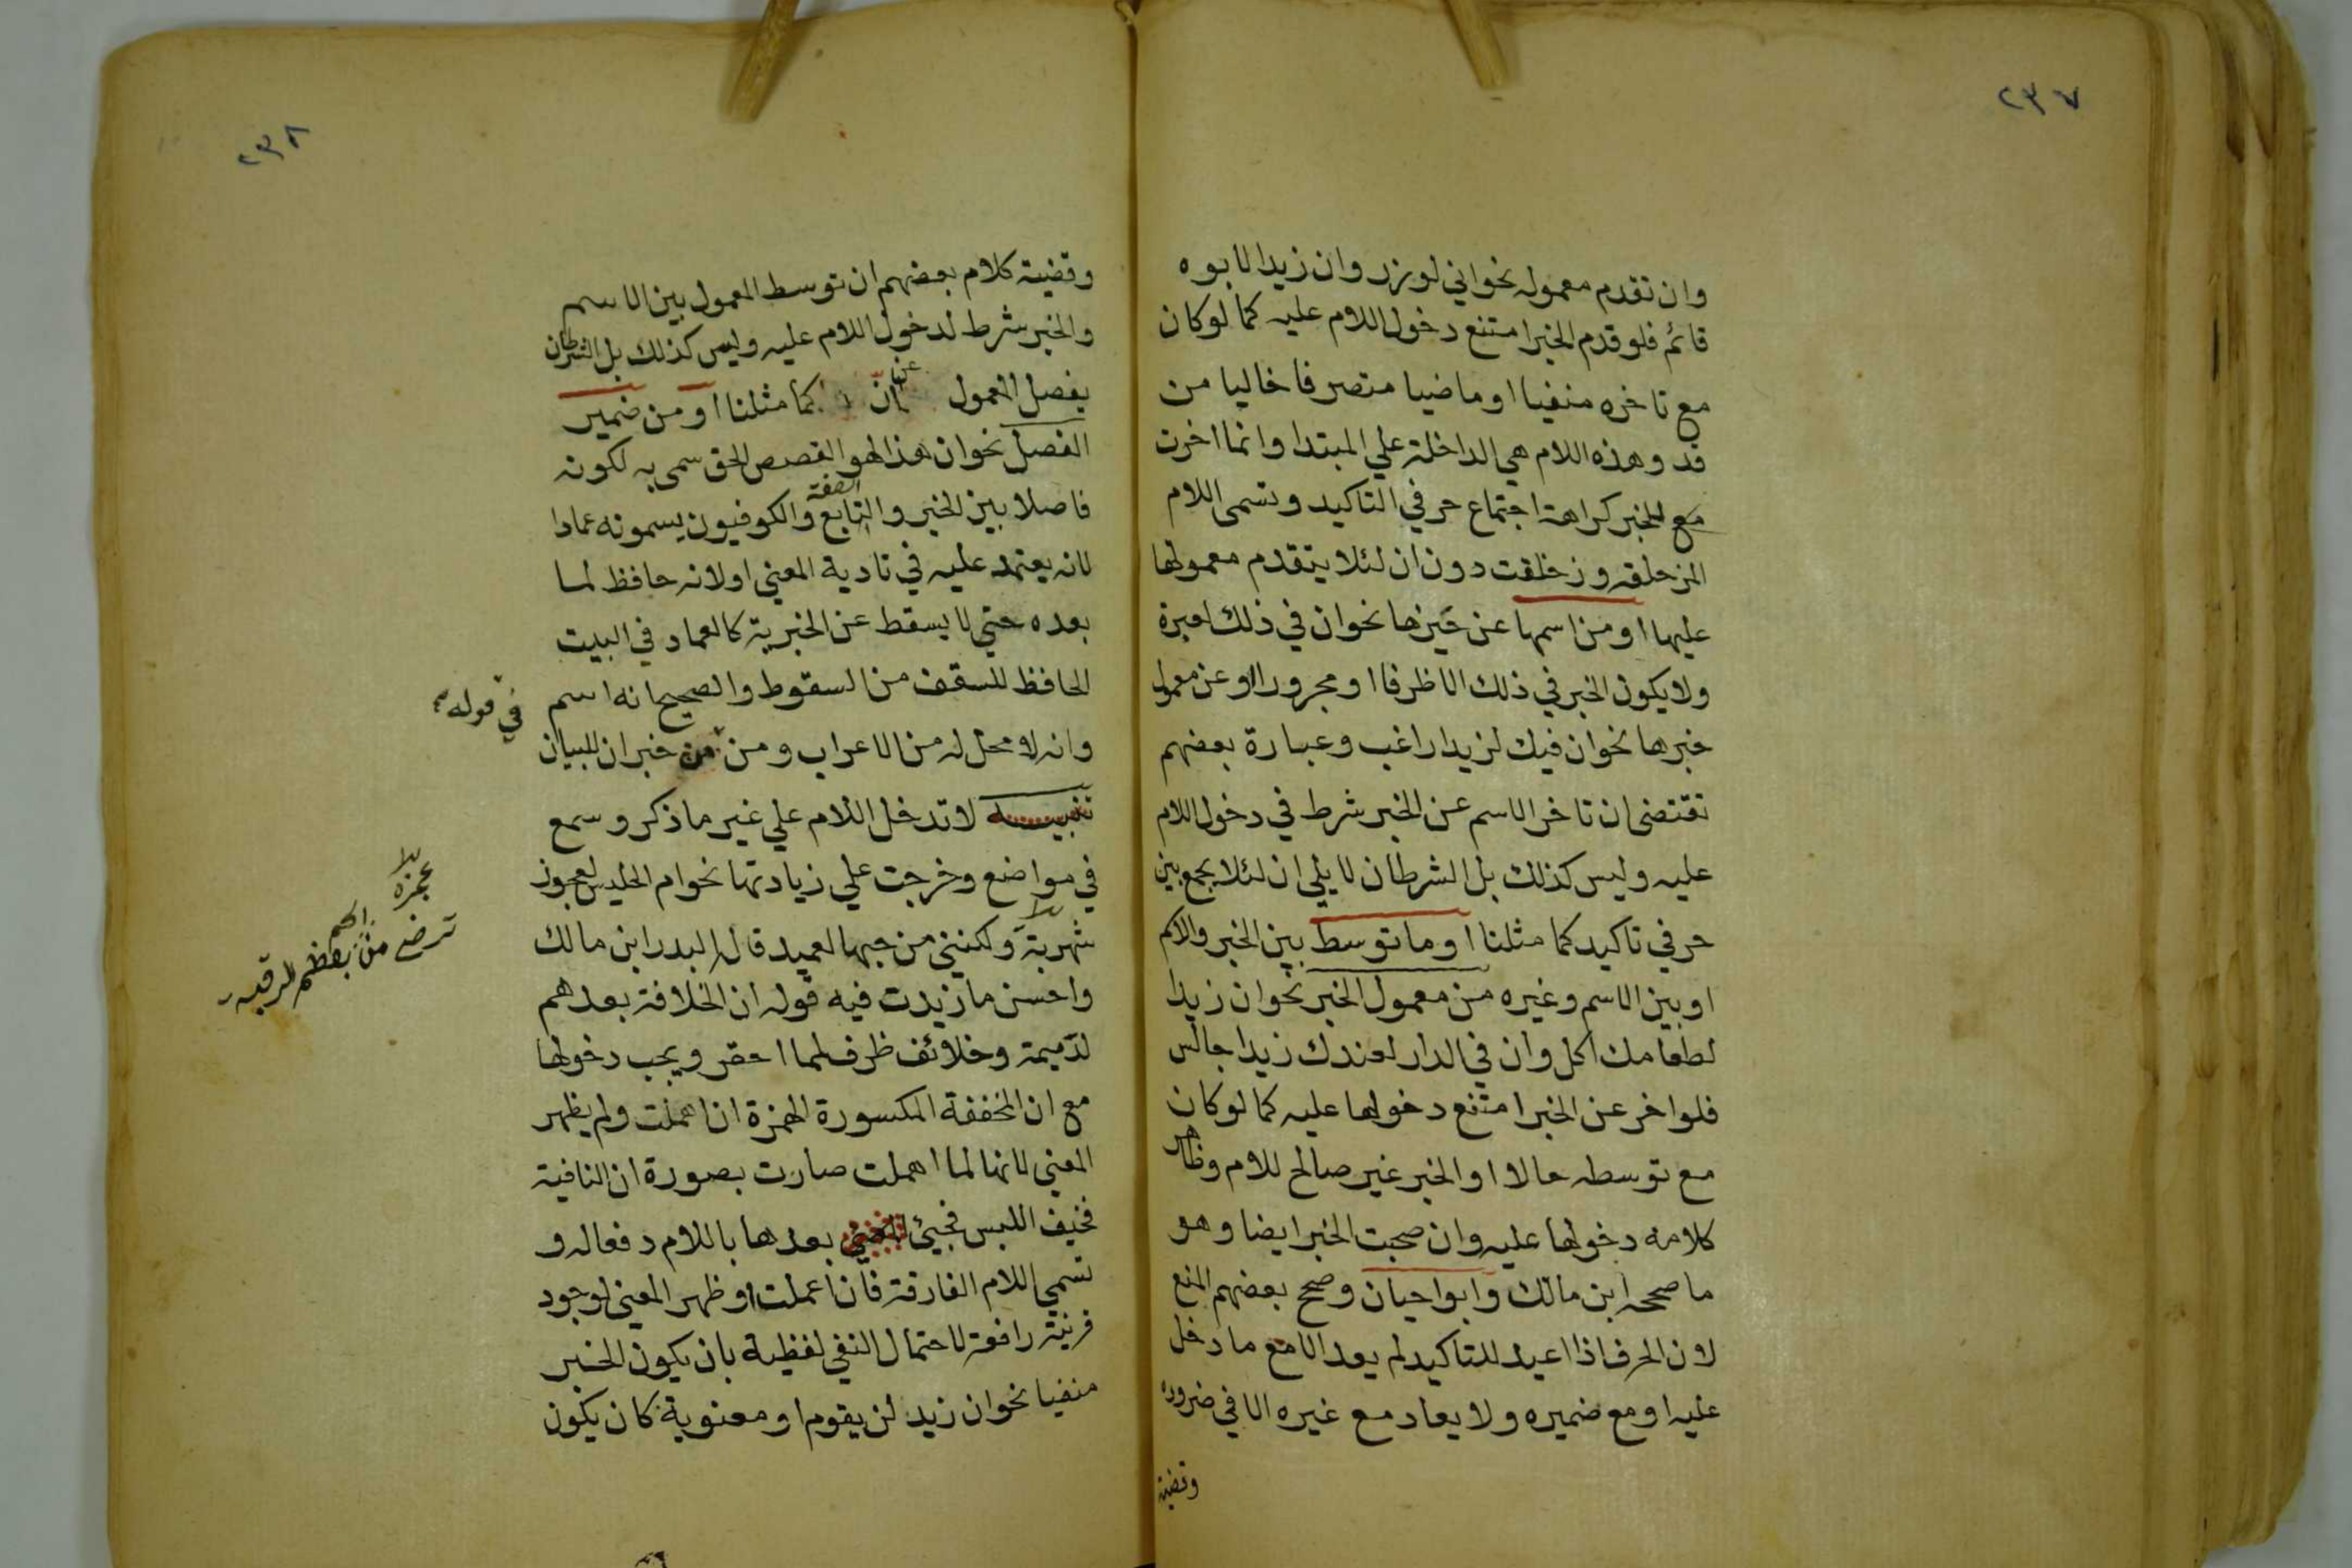 ٢٣٧
وان تقدم معموله نحو اني لوزر وان زيدا لابوه
قائم فلو قدم الخبر امتنع دخول اللام عليه كما لو كان
مع تاخره منفيا او ماضيا متصرفا خاليا من
قد وهذه اللام هي الداخلة علي المبتدا وانما اخرت
مع الخبر كراهة اجتماع حرفي التاكيد وتسمى اللام
المزحلقه وزحلقت دون ان لئلا يتقدم معمولها
عليها او من اسمها عن خبرها نحو ان في ذلك لعبرة
ولا يكون الخبر في ذلك الا ظرفا او مجرورا او عن معمول
خبرها نحو ان فيك لزيدا راغب وعبارة بعضهم
تقتضى ان تاخر الاسم عن الخبر شرط في دخول اللام
عليه وليس كذلك بل الشرط ان لا يلي ان لئلا يجمع بين
حرفي تاكيد كما مثلنا او ما توسط بين الخبر والاسم
او بين الاسم وغيره من معمول الخبر نحو ان زيدا
لطعامك اكل وان في الدار لعندك زيدا جالس
فلو اخر عن الخبر امتنع دخولها عليه كما لو كان
مع توسطه حالا او الخبر غير صالح للام وظاهر
كلامه دخولها عليه وان صحبت الخبر ايضا وهو
ما صححه ابن مالك وابوا حيان وصحح بعضهم المنع
لان الحرف اذا اعيد للتاكيد لم يعد الا مع ما دخل
عليه او مع ضميره ولا يعاد مع غيره الا في ضرورة
وقضية
٢٣٨
وقضية كلام بعضهم ان توسط المعمول بين الاسم
والخبر شرط لدخول اللام عليه وليس كذلك بل الشرط ان
يفصل المعمول عن ان كما مثلنا او من ضمير
الفصل نحو ان هذا لهو القصص الحق سمى به لكونه
فاصلا بين الخبر والتابع الصفة والكوفيون يسمونه عمادا
لانه يعتمد عليه في تادية المعني او لانه حافظ لما
بعده حتي لا يسقط عن الخبرية كالعماد في البيت
الحافظ للسقف من السقوط والصحيح انه اسم
وانه لا محل له من الاعراب ومن من خبر ان للبيان
في قوله
تنبيه لا تدخل اللام علي غير ما ذكر وسمع
في مواضع وخرجت علي زيادتها نحو ام الحليس لعجوز
شهربة ولكنني من حبها لعميد قال البدر ابن مالك
ترضى من بعظم الرقبه
واحسن ما زيدت فيه قوله ان الخلافة بعدهم
لدميمة وخلائف ظرف لمما احقر ويجب دخولها
مع ان المخففة المكسورة الهمزة ان اهملت ولم يظهر
المعني لانها لما اهملت صارت بصورة ان النافية
فخيف اللبس فجيئ بعدها باللام دفعا له و
تسمي اللام الفارقة فان اعملت او ظهر المعني لوجود
قرينة رافعة لاحتمال النفي لفظية بان يكون الخبر
منفيا نحو ان زيد لن يقوم او معنوية كان يكون